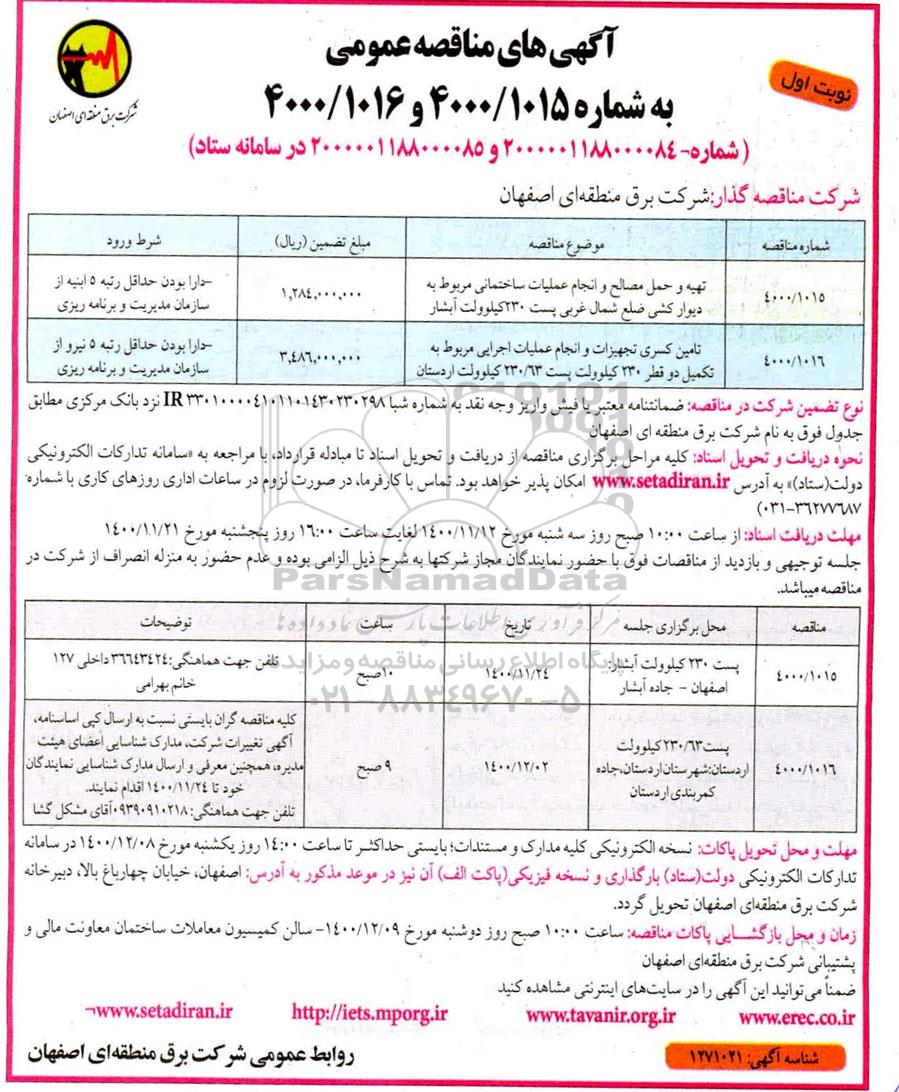 آگهی های مناقصه عمومی
به شماره ۴۰۰۰/۱۰۱۵ و ۴۰۰۰/۱۰۱۶
(شماره- ۲۰۰۰۰۰۱۱۸۸۰۰۰۰۸۴ و ۲۰۰۰۰۰۱۱۸۸۰۰۰۰۸۵ در سامانه ستاد)
نوبت اول
شرکت برق منطقه‌ای اصفهان
شرکت مناقصه گذار: شرکت برق منطقه‌ای اصفهان
شماره مناقصه موضوع مناقصه مبلغ تضمین (ریال) شرط ورود
۴۰۰۰/۱۰۱۵ تهیه و حمل مصالح و انجام عملیات ساختمانی مربوط به دیوار کشی ضلع شمال غربی پست ۲۳۰کیلوولت آبشار ۱,۲۸۴,۰۰۰,۰۰۰ -دارا بودن حداقل رتبه ۵ ابنیه از سازمان مدیریت و برنامه ریزی
۴۰۰۰/۱۰۱۶ تامین کسری تجهیزات و انجام عملیات اجرایی مربوط به تکمیل دو قطر ۲۳۰ کیلوولت پست ۲۳۰/۶۳ کیلوولت اردستان ۳,۴۸۶,۰۰۰,۰۰۰ -دارا بودن حداقل رتبه ۵ نیرو از سازمان مدیریت و برنامه ریزی
نوع تضمین شرکت در مناقصه: ضمانتنامه معتبر یا فیش واریز وجه نقد به شماره شبا IR ۳۳۰۱۰۰۰۰۴۱۰۱۱۰۱۴۳۰۲۳۰۲۹۸ نزد بانک مرکزی مطابق
جدول فوق به نام شرکت برق منطقه ای اصفهان
نحوه دریافت و تحویل اسناد: کلیه مراحل برگزاری مناقصه از دریافت و تحویل اسناد تا مبادله قرارداد، با مراجعه به «سامانه تدارکات الکترونیکی
دولت(ستاد)» به آدرس www.setadiran.ir امکان پذیر خواهد بود. تماس با کارفرما، در صورت لزوم در ساعات اداری روزهای کاری با شماره:
۳۶۲۷۷۶۸۷-(۰۳۱)
مهلت دریافت اسناد: از ساعت ۱۰:۰۰ صبح روز سه شنبه مورخ ۱۴۰۰/۱۱/۱۲ لغایت ساعت ۱۶:۰۰ روز پنجشنبه مورخ ۱۴۰۰/۱۱/۲۱
جلسه توجیهی و بازدید از مناقصات فوق با حضور نمایندگان مجاز شرکتها به شرح ذیل الزامی بوده و عدم حضور به منزله انصراف از شرکت در
مناقصه میباشد.
ParsNamadData
مرکز فرآوری اطلاعات پارس نماد داده ها
پایگاه اطلاع رسانی مناقصه و مزایده
۰۲۱-۸۸۳۴۹۶۷۰-۵
مناقصه محل برگزاری جلسه تاریخ ساعت توضیحات
۴۰۰۰/۱۰۱۵ پست ۲۳۰ کیلوولت آبشار: اصفهان - جاده آبشار ۱۴۰۰/۱۱/۲۴ ۱۰صبح تلفن جهت هماهنگی:۳۶۶۴۳۴۲۴ داخلی ۱۲۷ خانم بهرامی
۴۰۰۰/۱۰۱۶ پست۲۳۰/۶۳کیلوولت اردستان:شهرستان اردستان،جاده کمربندی اردستان ۱۴۰۰/۱۲/۰۲ ۹ صبح کلیه مناقصه گران بایستی نسبت به ارسال کپی اساسنامه، آگهی تغییرات شرکت، مدارک شناسایی اعضای هیئت مدیره، همچنین معرفی و ارسال مدارک شناسایی نمایندگان خود تا ۱۴۰۰/۱۱/۲۴ اقدام نمایند. تلفن جهت هماهنگی: ۰۹۳۹۰۹۱۰۲۱۸آقای مشکل گشا
مهلت و محل تحویل پاکات: نسخه الکترونیکی کلیه مدارک و مستندات؛ بایستی حداکثر تا ساعت ۱۴:۰۰ روز یکشنبه مورخ ۱۴۰۰/۱۲/۰۸ در سامانه
تدارکات الکترونیکی دولت(ستاد) بارگذاری و نسخه فیزیکی(پاکت الف) آن نیز در موعد مذکور به آدرس: اصفهان، خیابان چهارباغ بالا، دبیرخانه
شرکت برق منطقه‌ای اصفهان تحویل گردد.
زمان و محل بازگشایی پاکات مناقصه: ساعت ۱۰:۰۰ صبح روز دوشنبه مورخ ۱۴۰۰/۱۲/۰۹- سالن کمیسیون معاملات ساختمان معاونت مالی و
پشتیبانی شرکت برق منطقه‌ای اصفهان
ضمناً می‌توانید این آگهی را در سایت‌های اینترنتی مشاهده کنید
www.erec.co.ir www.tavanir.org.ir http://iets.mporg.ir www.setadiran.ir¬
شناسه آگهی: ۱۲۷۱۰۲۱
روابط عمومی شرکت برق منطقه‌ای اصفهان